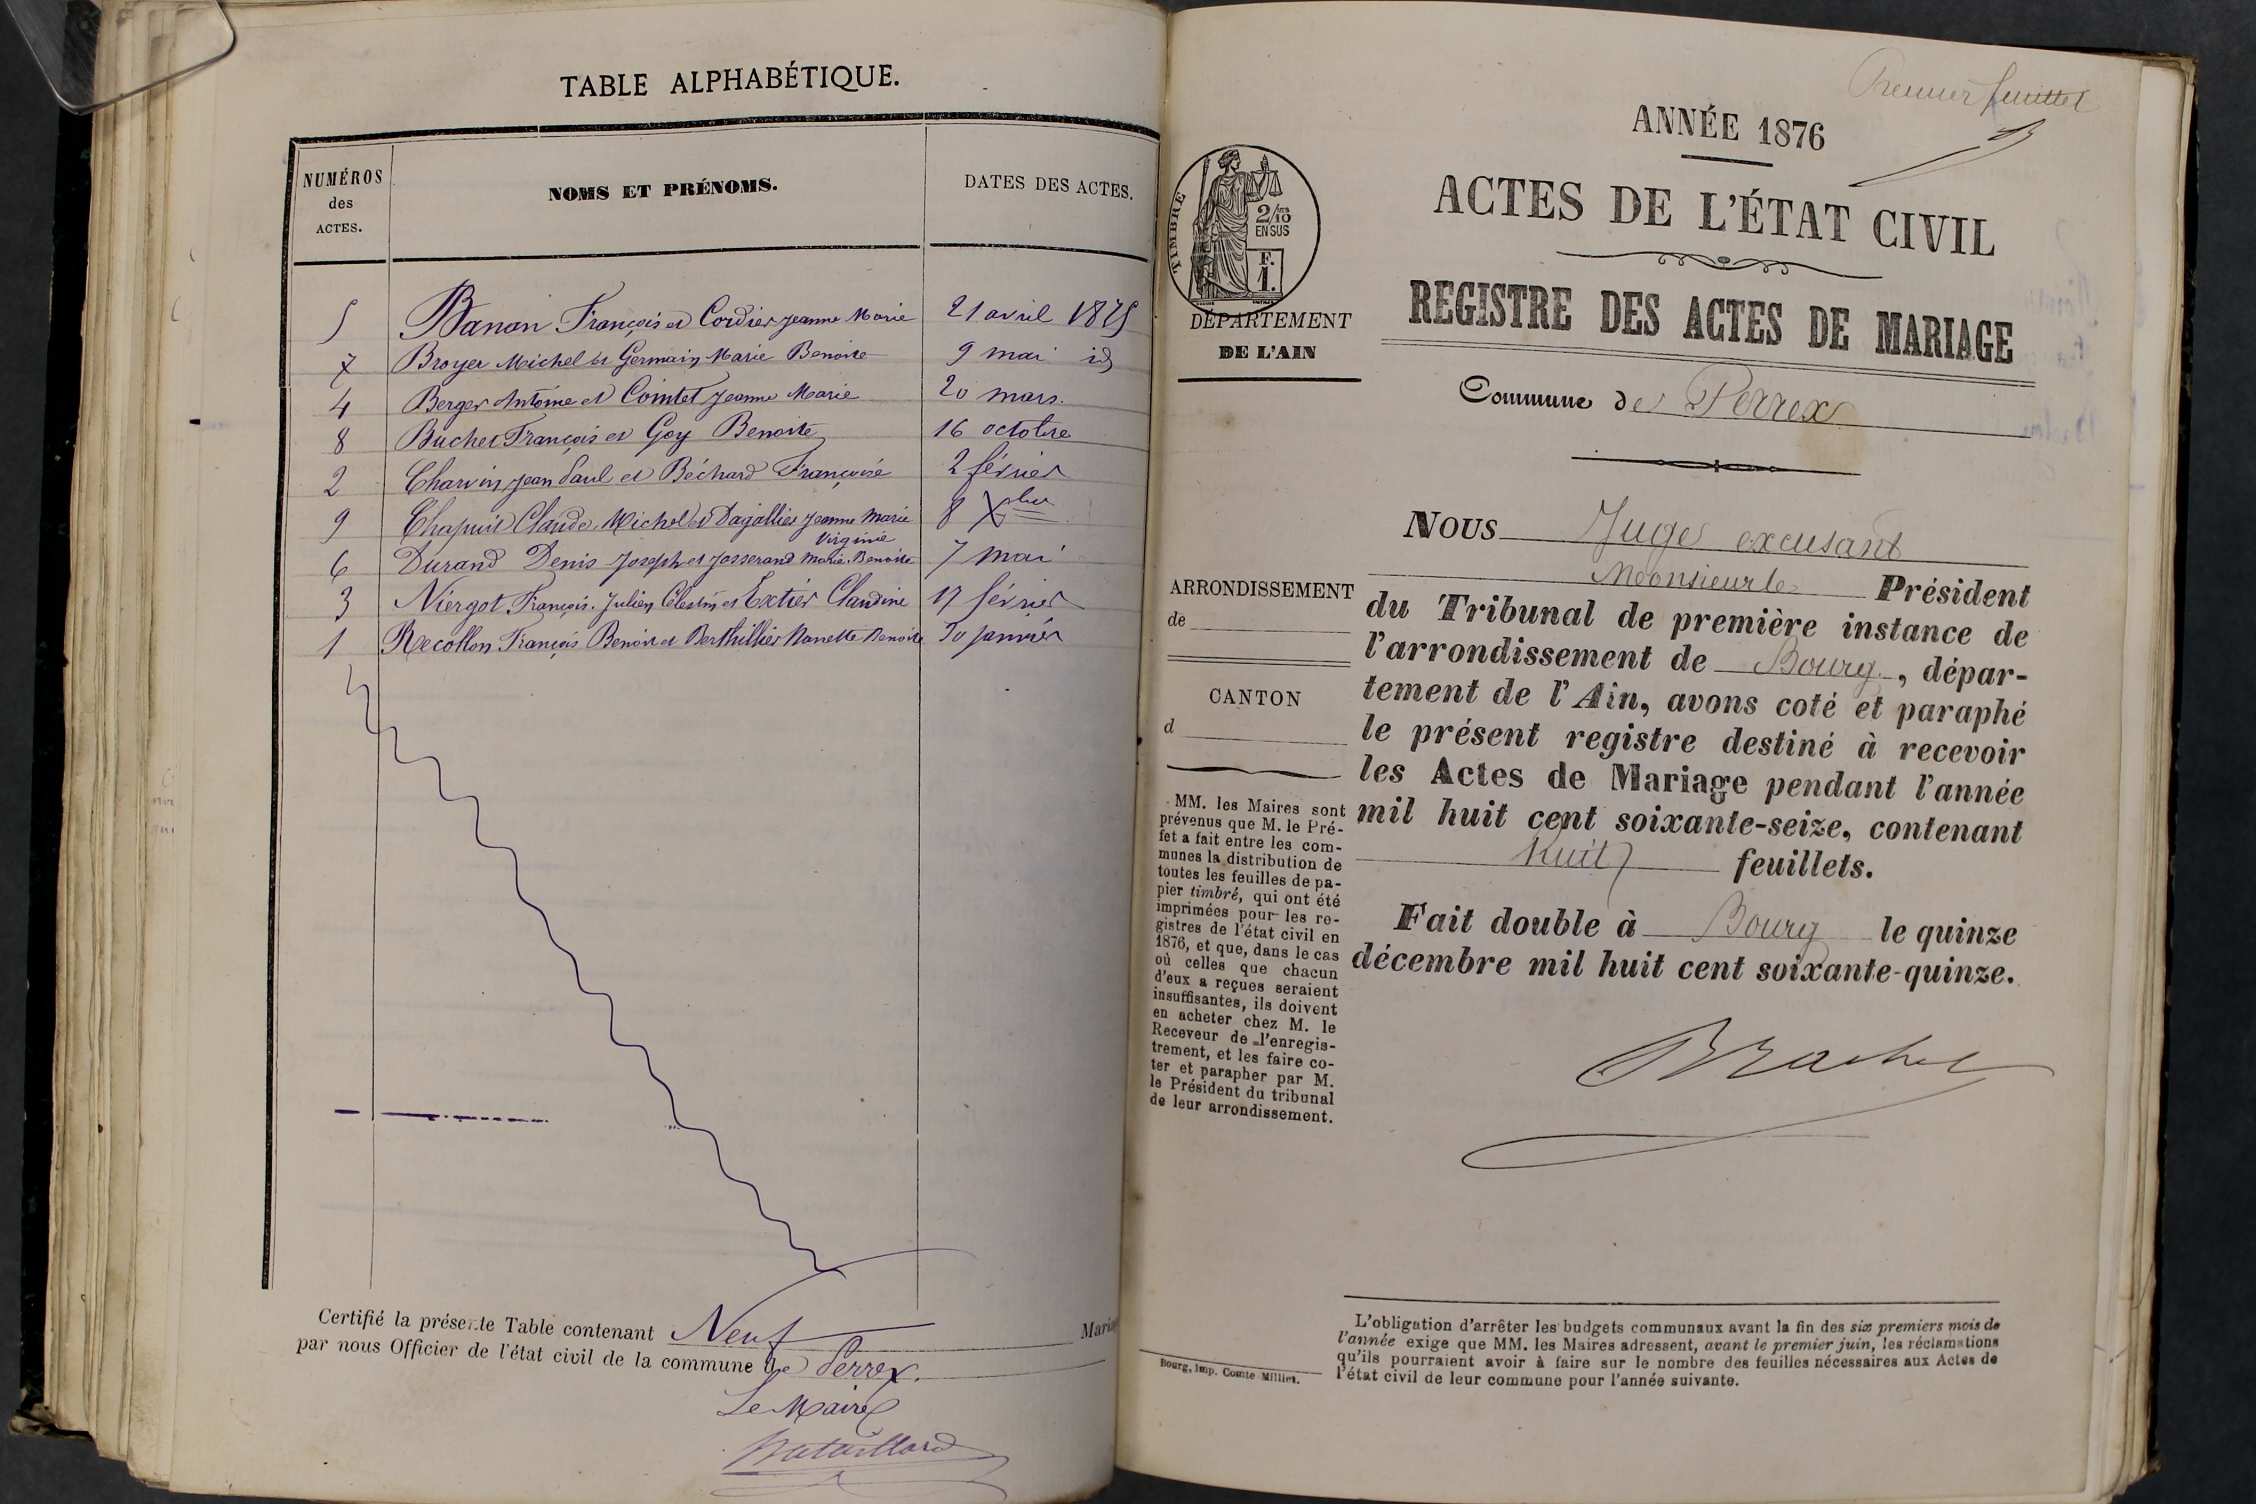 TABLE ALPHABÉTIQUE.
NUMÉROS des ACTES. NOMS ET PRÉNOMS. DATES DES ACTES.
5 Banan François et Cordier Jeanne Marie 21 avril 1875
7 Broyer Michel et Germain Marie Benoite 9 mai id
4 Berger Antoine et Cointet Jeanne Marie 20 mars.
8 Buchet François et Goy Benoite 16 octobre
2 Charvin Jean Paul et Béchard Françoise 2 février
9 Chapuis Claude Michel et Dagallier Jeanne Marie Virginie 8 Xbre
6 Durand Denis Joseph et Josserand Marie Benoite 7 mai
3 Niergot François Julien Célestin et Extier Claudine 17 février
1 Recollon François Benoit et Berthillier Nanette Benoite 30 janvier
Certifié la présente Table contenant Neuf Maria
par nous Officier de l'état civil de la commune de Perrex.
Le Maire
Bataillard
Premier feuillet
ANNÉE 1876
ACTES DE L'ÉTAT CIVIL
REGISTRE DES ACTES DE MARIAGE
Commune de Perrex
TIMBRE
2/10
EN SUS
F.
1.
DÉPARTEMENT
DE L'AIN
ARRONDISSEMENT
de
CANTON
d
MM. les Maires sont
prévenus que M. le Pré-
fet a fait entre les com-
munes la distribution de
toutes les feuilles de pa-
pier timbré, qui ont été
imprimées pour les re-
gistres de l'état civil en
1876, et que, dans le cas
où celles que chacun
d'eux a reçues seraient
insuffisantes, ils doivent
en acheter chez M. le
Receveur de l'enregis-
trement, et les faire co-
ter et parapher par M.
le Président du tribunal
de leur arrondissement.
Bourg, Imp. Comte Milliet.
NOUS Juge excusant
Monsieur le Président
du Tribunal de première instance de
l'arrondissement de Bourg, dépar-
tement de l'Ain, avons coté et paraphé
le présent registre destiné à recevoir
les Actes de Mariage pendant l'année
mil huit cent soixante-seize, contenant
huit feuillets.
Fait double à Bourg le quinze
décembre mil huit cent soixante-quinze.
L'obligation d'arrêter les budgets communaux avant la fin des six premiers mois de
l'année exige que MM. les Maires adressent, avant le premier juin, les réclamations
qu'ils pourraient avoir à faire sur le nombre des feuilles nécessaires aux Actes de
l'état civil de leur commune pour l'année suivante.